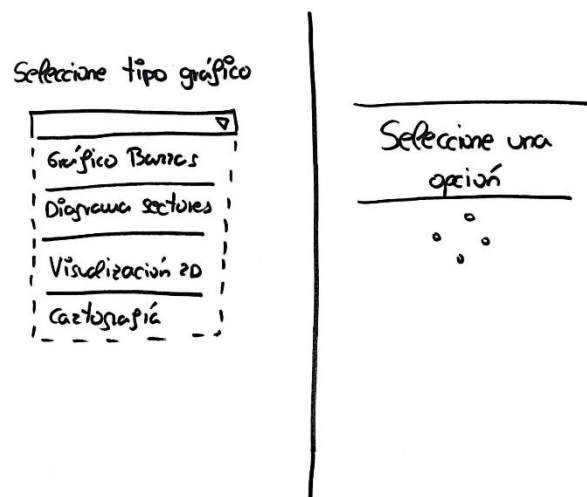 Seleccione tipo gráfico
Gráfico Barras
Diagrama sectores
Visualización 2D
Cartografía
Seleccione una
opción